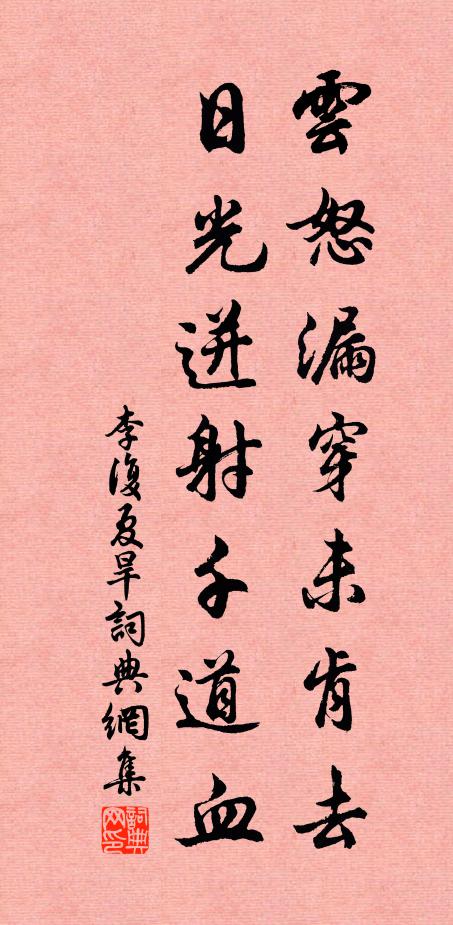 雲怒漏穿未肯去
日光迸射千道血
李復夏旱詞典網集
詞典網印